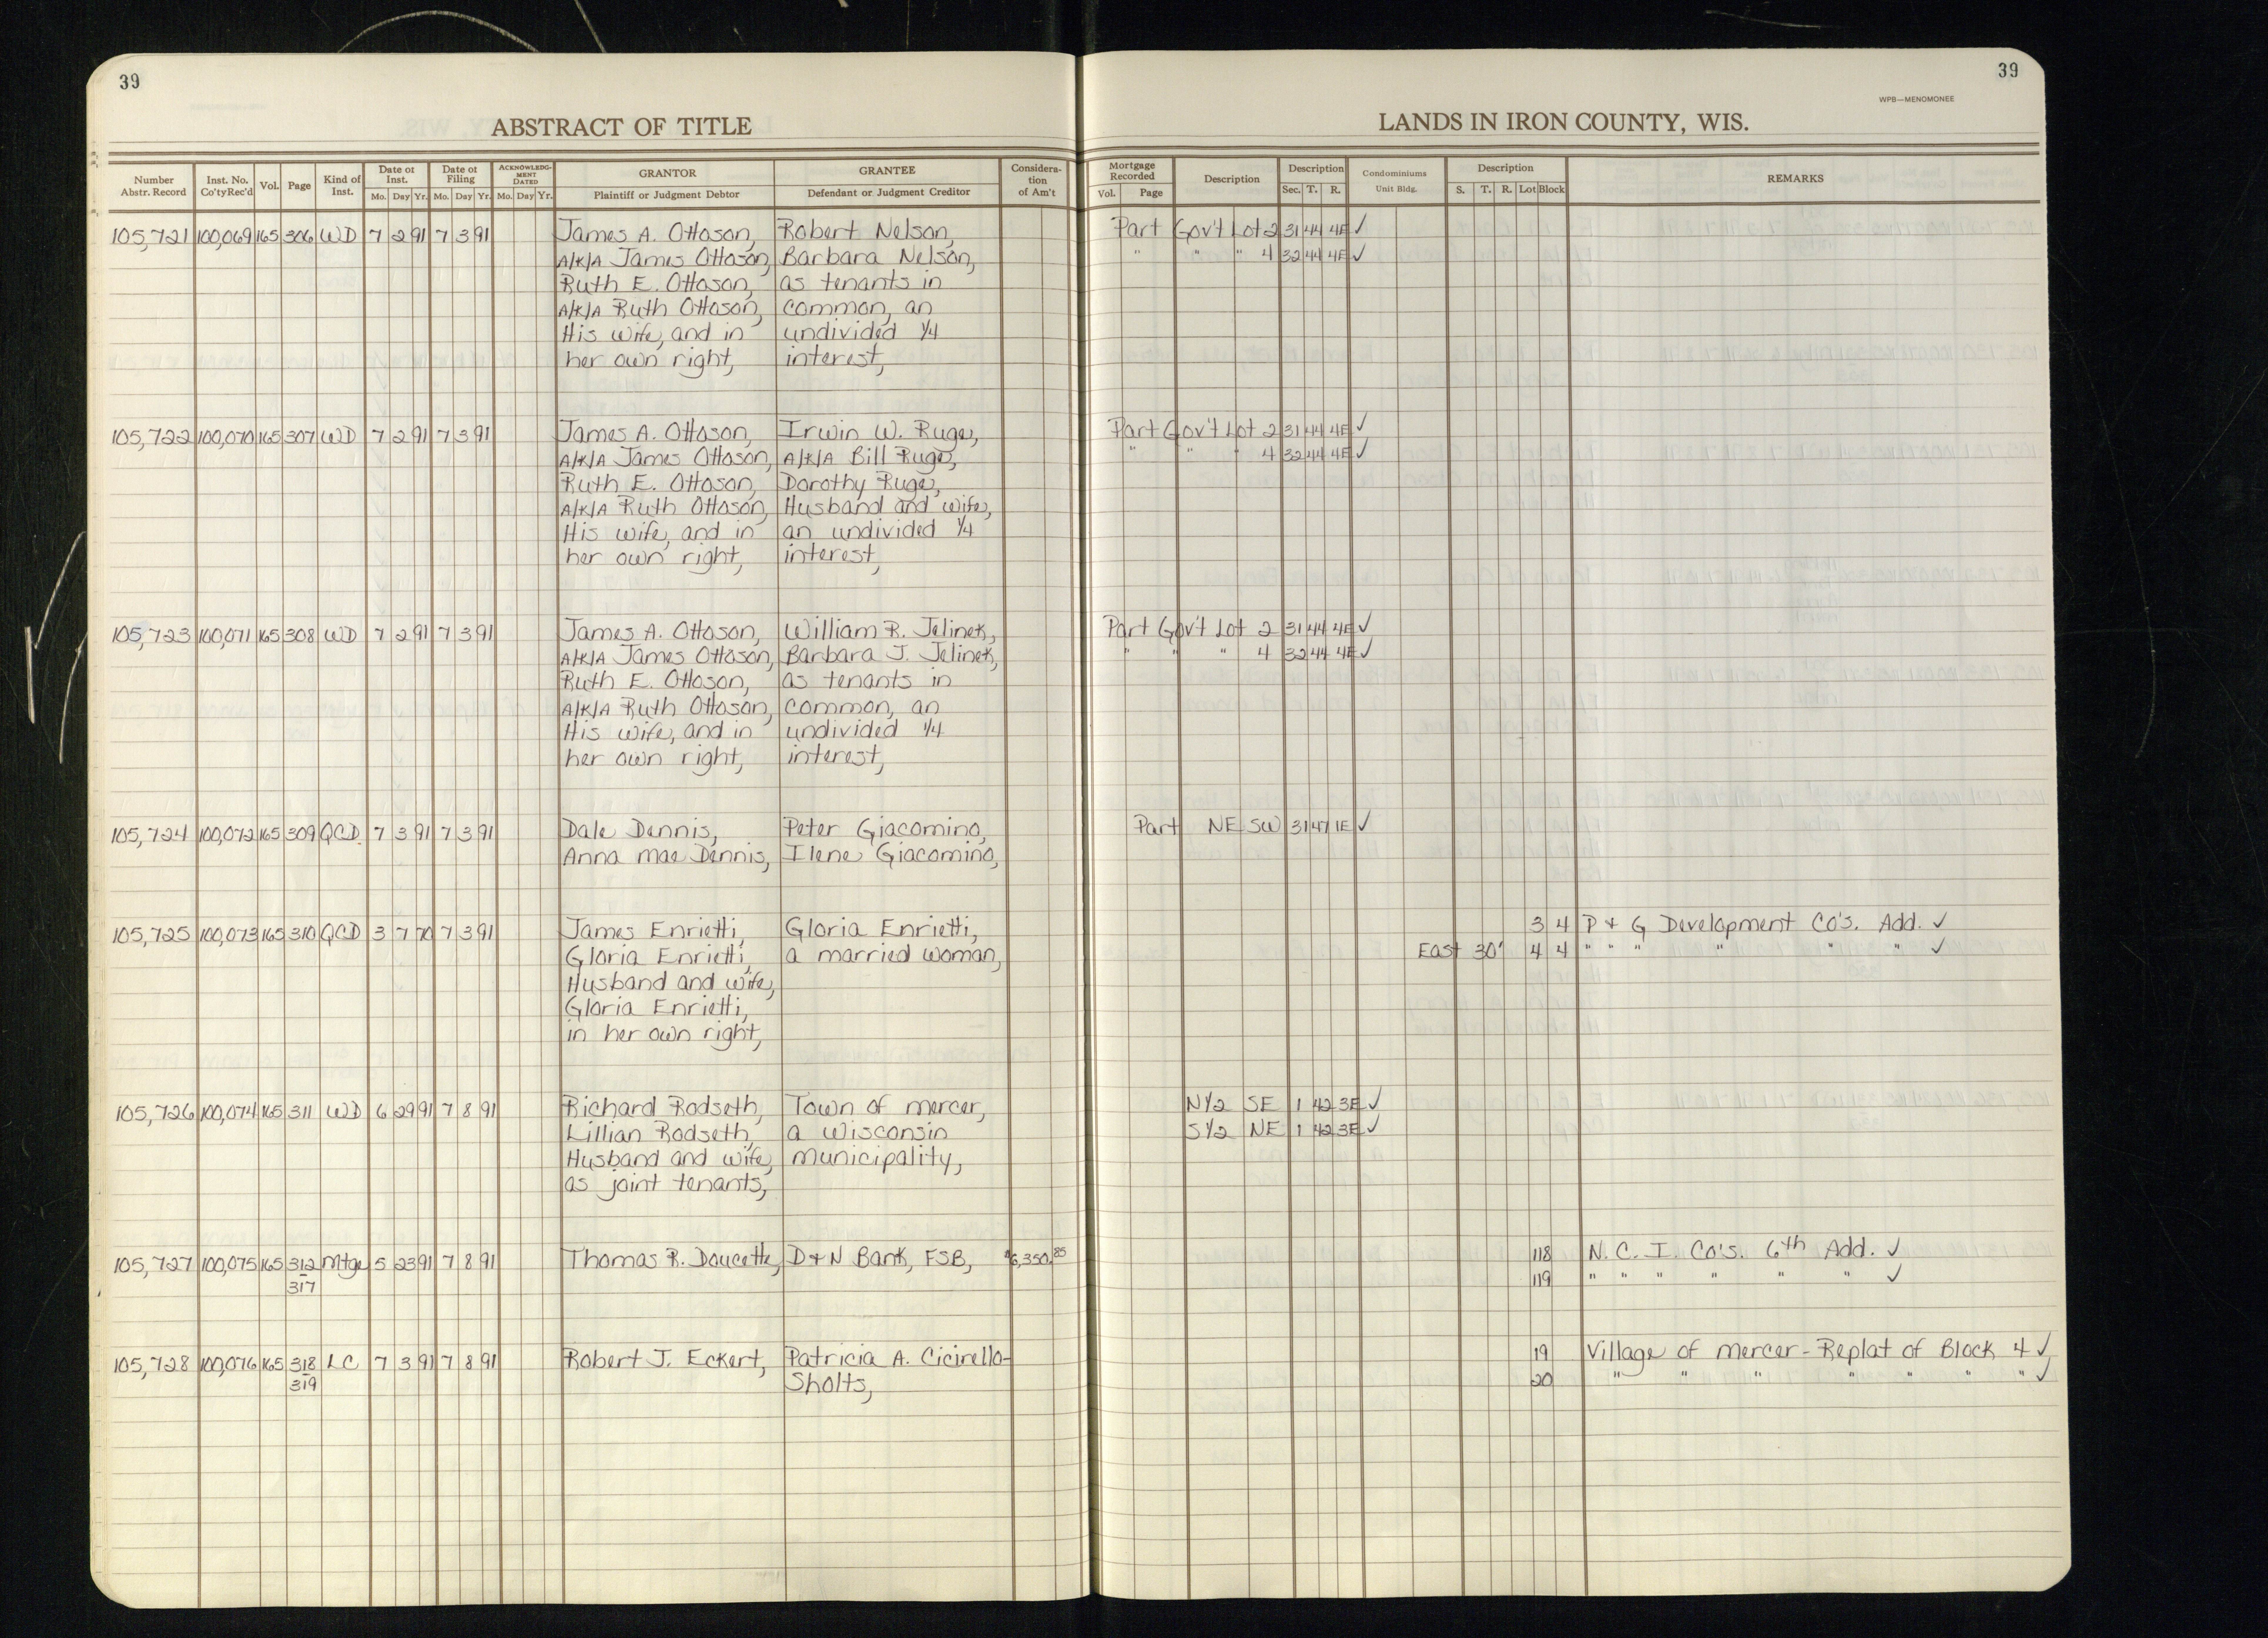 39
39
WPB—MENOMONEE
ABSTRACT OF TITLE
LANDS IN IRON COUNTY, WIS.
Number Abstr. Record Inst. No. Co'ty Rec'd Vol. Page Kind of Inst. Date of Inst. Mo. Day Yr. Date of Filing Mo. Day Yr. ACKNOWLEDGMENT DATED Mo. Day Yr. GRANTOR Plaintiff or Judgment Debtor GRANTEE Defendant or Judgment Creditor Consideration of Am't Mortgage Recorded Vol. Page Description Description Sec. T. R. Condominiums Unit Bldg. Description S. T. R. Lot Block REMARKS
105,721 100,069 165 306 WD 7 2 91 7 3 91 James A. Ottoson, Robert Nelson, Part Gov't Lot 2 31 44 4E ✓
A/K/A James Ottoson, Barbara Nelson, " " " 4 32 44 4E ✓
Ruth E. Ottoson, as tenants in
A/K/A Ruth Ottoson, common, an
His wife, and in undivided 1/4
her own right, interest,
105,722 100,070 165 307 WD 7 2 91 7 3 91 James A. Ottoson, Irwin W. Ruge, Part Gov't Lot 2 31 44 4E ✓
A/K/A James Ottoson, A/K/A Bill Ruge, " " " 4 32 44 4E ✓
Ruth E. Ottoson, Dorothy Ruge,
A/K/A Ruth Ottoson, Husband and wife,
His wife, and in an undivided 1/4
her own right, interest,
105,723 100,071 165 308 WD 7 2 91 7 3 91 James A. Ottoson, William R. Jelinek, Part Gov't Lot 2 31 44 4E ✓
A/K/A James Ottoson, Barbara J. Jelinek, " " " 4 32 44 4E ✓
Ruth E. Ottoson, as tenants in
A/K/A Ruth Ottoson, common, an
His wife, and in undivided 1/4
her own right, interest,
105,724 100,072 165 309 QCD 7 3 91 7 3 91 Dale Dennis, Peter Giacomino, Part NE SW 31 47 1E ✓
Anna Mae Dennis, Ilene Giacomino,
105,725 100,073 165 310 QCD 3 7 70 7 3 91 James Enrietti, Gloria Enrietti, 3 4 P & G Development Co's. Add. ✓
Gloria Enrietti, a married woman, East 30' 4 4 " " " " " " ✓
Husband and wife,
Gloria Enrietti,
in her own right,
105,726 100,074 165 311 WD 6 29 91 7 8 91 Richard Rodseth, Town of Mercer, N1/2 SE 1 42 3E ✓
Lillian Rodseth, a Wisconsin S1/2 NE 1 42 3E ✓
Husband and wife, municipality,
as joint tenants,
105,727 100,075 165 312 Mtge 5 23 91 7 8 91 Thomas R. Doucette, D & N Bank, FSB, $6,350.85 118 N. C. I. Co's. 6th Add. ✓
317 119 " " " " " " ✓
105,728 100,076 165 318 LC 7 3 91 7 8 91 Robert J. Eckert, Patricia A. Cicirello- 19 Village of Mercer - Replat of Block 4 ✓
319 Sholts, 20 " " " " " " " ✓